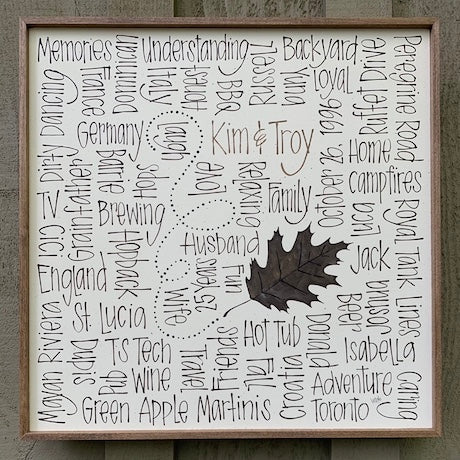 Memories
Understanding
Backyard
Peregrine Road
France
Dominican
Italy
Honest
BBQ
Tessa
Yuna
Loyal
Ruffet Drive
Dirty Dancing
Germany
Laugh
Kim & Troy
October 26, 1996
Home
Campfires
Grainfather
Barrie
Shots
Love
Relaxing
Family
CTCI TV
Brewing
Luca
Royal Tank Lines
Hopback
Husband
Jack
England
25 Years
Fun
St. Lucia
Wife
Beer
Junsar
Mayan Riviera
Dup's
TS Tech
Hot Tub
Donald
Isabella
Pub
Wine
Travel
Friends
Fall
Croatia
Adventure
Caring
Green Apple Martinis
Toronto